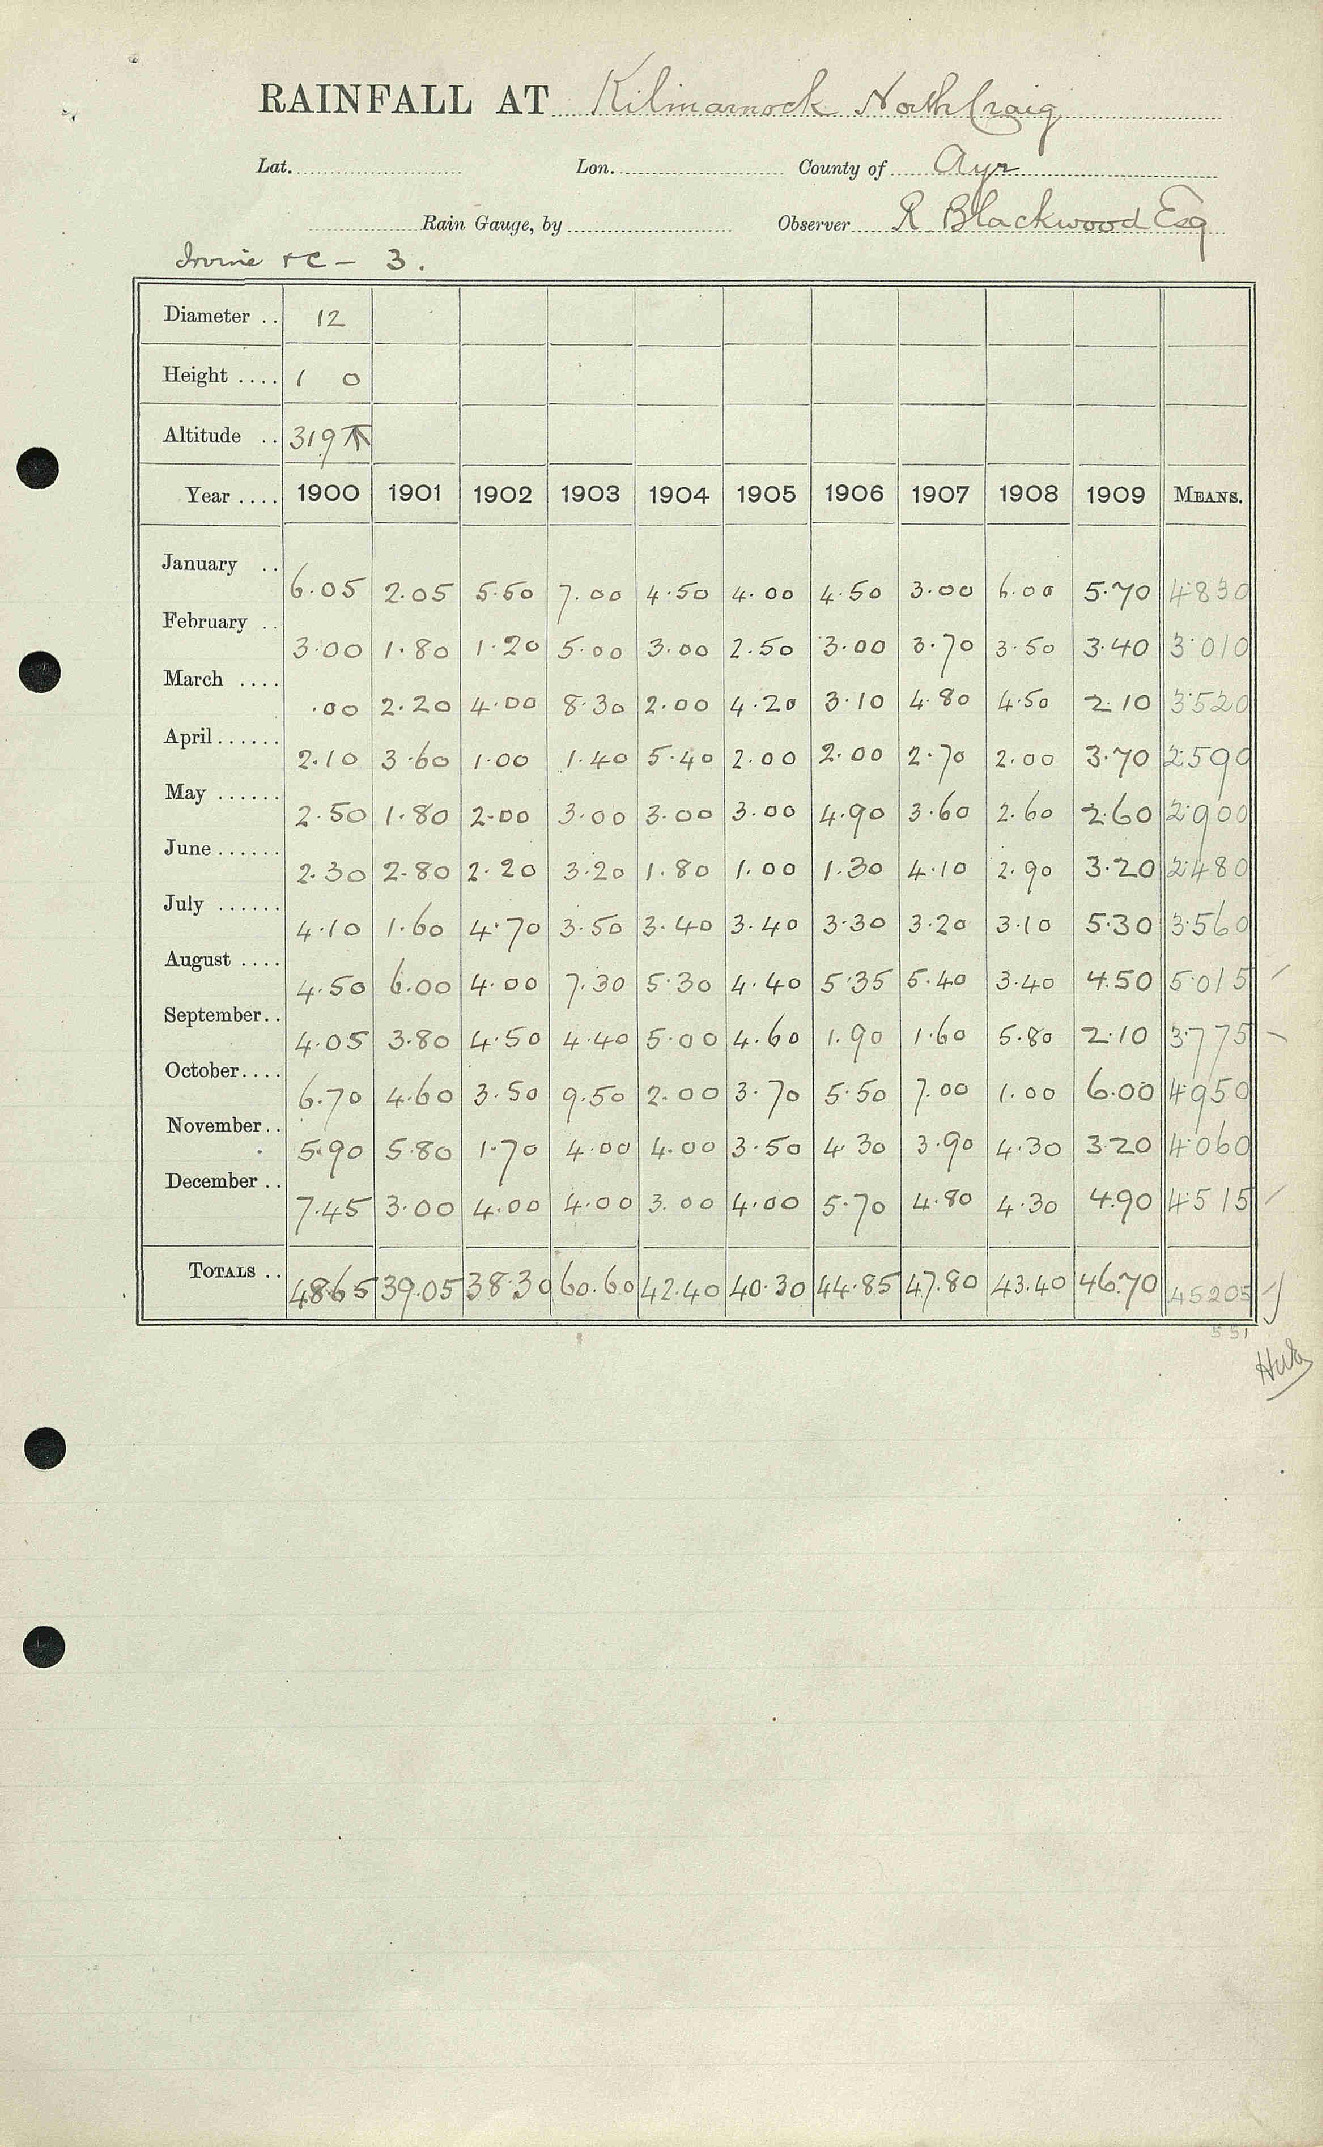 RAINFALL AT Kilmarnock North Craig
Lat. Lon. County of Ayr
Rain Gauge, by Observer R Blackwood Esq
Irvine &c - 3.
Diameter .. 12
Height .... 1 0
Altitude .. 319
Year .... 1900 1901 1902 1903 1904 1905 1906 1907 1908 1909 MEANS.
January .. 6.05 2.05 5.50 7.00 4.50 4.00 4.50 3.00 6.00 5.70 4.830
February .. 3.00 1.80 1.20 5.00 3.00 2.50 3.00 3.70 3.50 3.40 3.010
March .... .00 2.20 4.00 8.30 2.00 4.20 3.10 4.80 4.50 2.10 3.520
April ...... 2.10 3.60 1.00 1.40 5.40 2.00 2.00 2.70 2.00 3.70 2.590
May ...... 2.50 1.80 2.00 3.00 3.00 3.00 4.90 3.60 2.60 2.60 2.900
June ...... 2.30 2.80 2.20 3.20 1.80 1.00 1.30 4.10 2.90 3.20 2.480
July ...... 4.10 1.60 4.70 3.50 3.40 3.40 3.30 3.20 3.10 5.30 3.560
August .... 4.50 6.00 4.00 7.30 5.30 4.40 5.35 5.40 3.40 4.50 5.015
September .. 4.05 3.80 4.50 4.40 5.00 4.60 1.90 1.60 5.80 2.10 3.775
October .... 6.70 4.60 3.50 9.50 2.00 3.70 5.50 7.00 1.00 6.00 4.950
November .. 5.90 5.80 1.70 4.00 4.00 3.50 4.30 3.90 4.30 3.20 4.060
December .. 7.45 3.00 4.00 4.00 3.00 4.00 5.70 4.80 4.30 4.90 4.515
TOTALS .. 48.65 39.05 38.30 60.60 42.40 40.30 44.85 47.80 43.40 46.70 45205
551